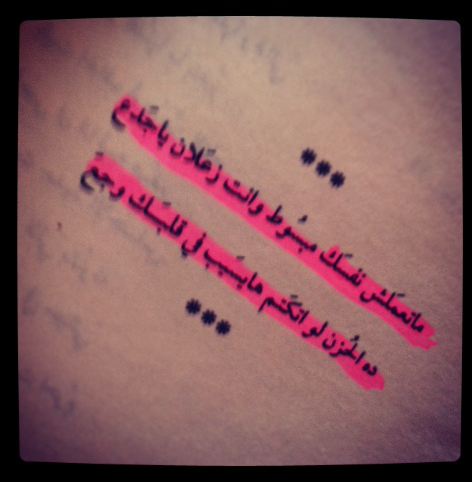 ***
ماتعملش نفسَك مبسُوط وانت زعَلان ياجَدع
ده الحُزن لو اتكَتم هايسَيب في قلبَك وجَع
***